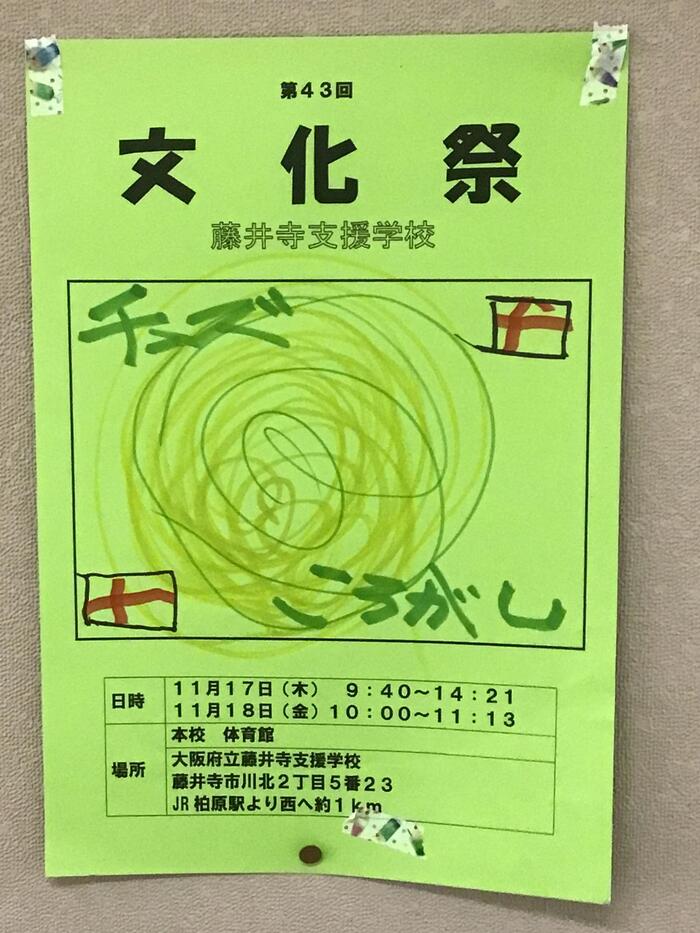 第43回
文化祭
藤井寺支援学校
チーズ
ころがし
日時
11月17日（木） 9：40～14：21
11月18日（金）10：00～11：13
場所
本校 体育館
大阪府立藤井寺支援学校
藤井寺市川北2丁目5番23
JR柏原駅より西へ約1km